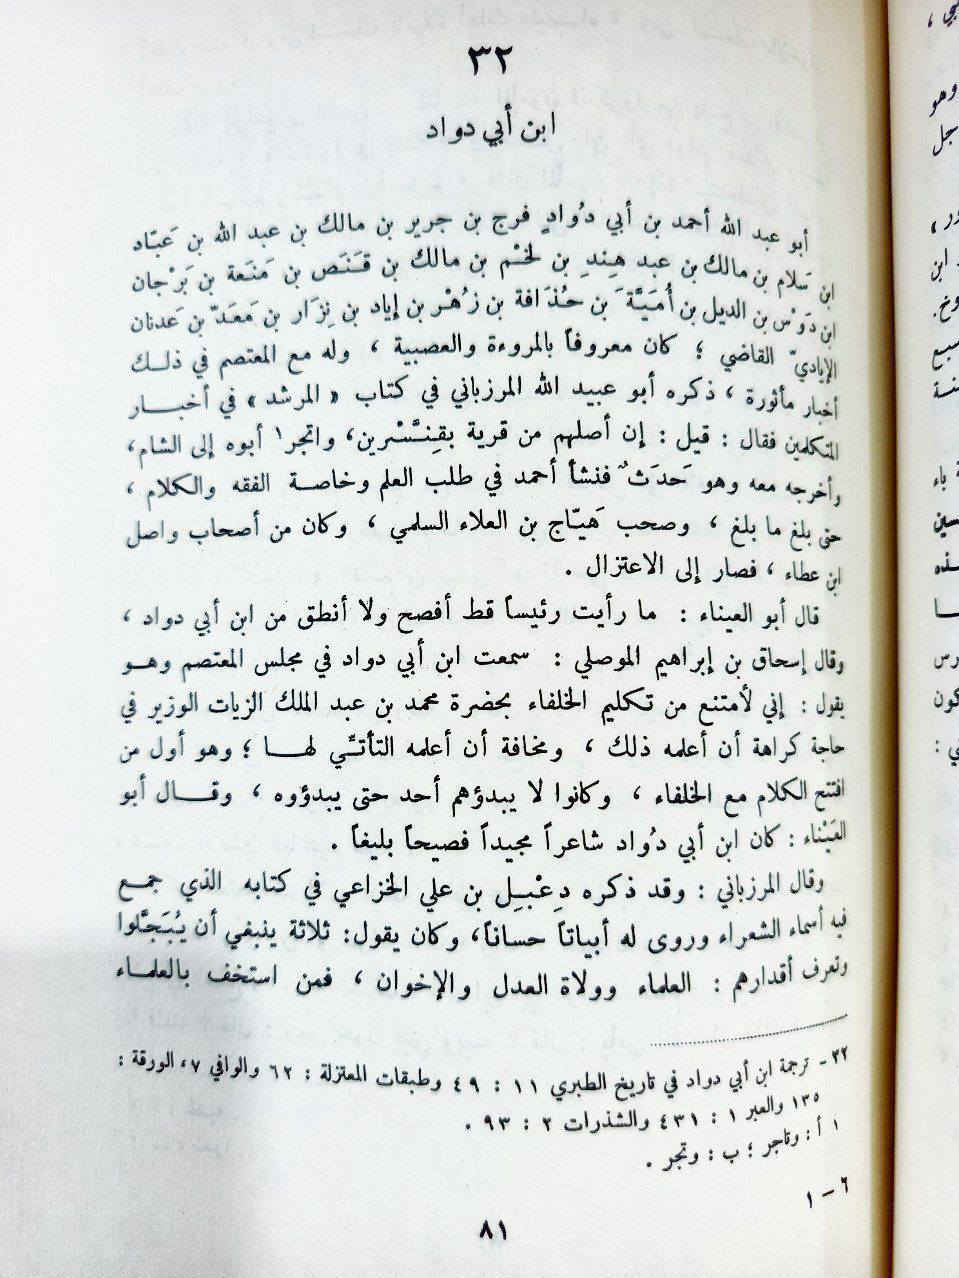 ٣٢
ابن أبي دواد
أبو عبد الله أحمد بن أبي دُوادٍ فرج بن جرير بن مالك بن عبد الله بن عَبّاد
ابن سَلام بن مالك بن عبد هِندِ بن لخْم بن مالك بن قَنَص بن مَنَعة بن بَرْجان
ابن دَوْس بن الديل بن أُمَيَّةَ بن حُذَافة بن زُهْر بن إياد بن نِزَار بن مَعَدّ بن عَدنان
الإياديّ القاضي ؛ كان معروفاً بالمروءة والعصبية ، وله مع المعتصم في ذلك
أخبار مأثورة ، ذكره أبو عبيد الله المرزباني في كتاب « المرشد » في أخبار
المتكلمين فقال : قيل : إن أصلهم من قرية بقِنَّسْرين، واتجر١ أبوه إلى الشام،
وأخرجه معه وهو حَدَثٌ فنشأ أحمد في طلب العلم وخاصة الفقه والكلام ،
حتى بلغ ما بلغ ، وصحب هَيّاج بن العلاء السلمي ، وكان من أصحاب واصل
ابن عطاء ، فصار إلى الاعتزال .
قال أبو العيناء : ما رأيت رئيساً قط أفصح ولا أنطق من ابن أبي دواد ،
وقال إسحاق بن إبراهيم الموصلي : سمعت ابن أبي دواد في مجلس المعتصم وهو
يقول : إني لأمتنع من تكليم الخلفاء بحضرة محمد بن عبد الملك الزيات الوزير في
حاجة كراهة أن أعلمه ذلك ، ومخافة أن أعلمه التأتي لها ؛ وهو أول من
افتتح الكلام مع الخلفاء ، وكانوا لا يبدؤهم أحد حتى يبدؤوه ، وقال أبو
العَيْناء : كان ابن أبي دُواد شاعراً مجيداً فصيحاً بليغاً .
وقال المرزباني : وقد ذكره دِعْبِل بن علي الخزاعي في كتابه الذي جمع
فيه أسماء الشعراء وروى له أبياتاً حساناً، وكان يقول: ثلاثة ينبغي أن يُبَجَّلوا
وتعرف أقدارهم : العلماء وولاة العدل والإخوان ، فمن استخف بالعلماء
٣٢ - ترجمة ابن أبي دواد في تاريخ الطبري ١١ : ٤٩ وطبقات المعتزلة : ٦٢ والوافي ٧، الورقة :
١٣٥ والعبر ١ : ٤٣١ والشذرات ٢ : ٩٣ .
١ أ : وتاجر ؛ ب : وتجر .
٦ - ١
٨١